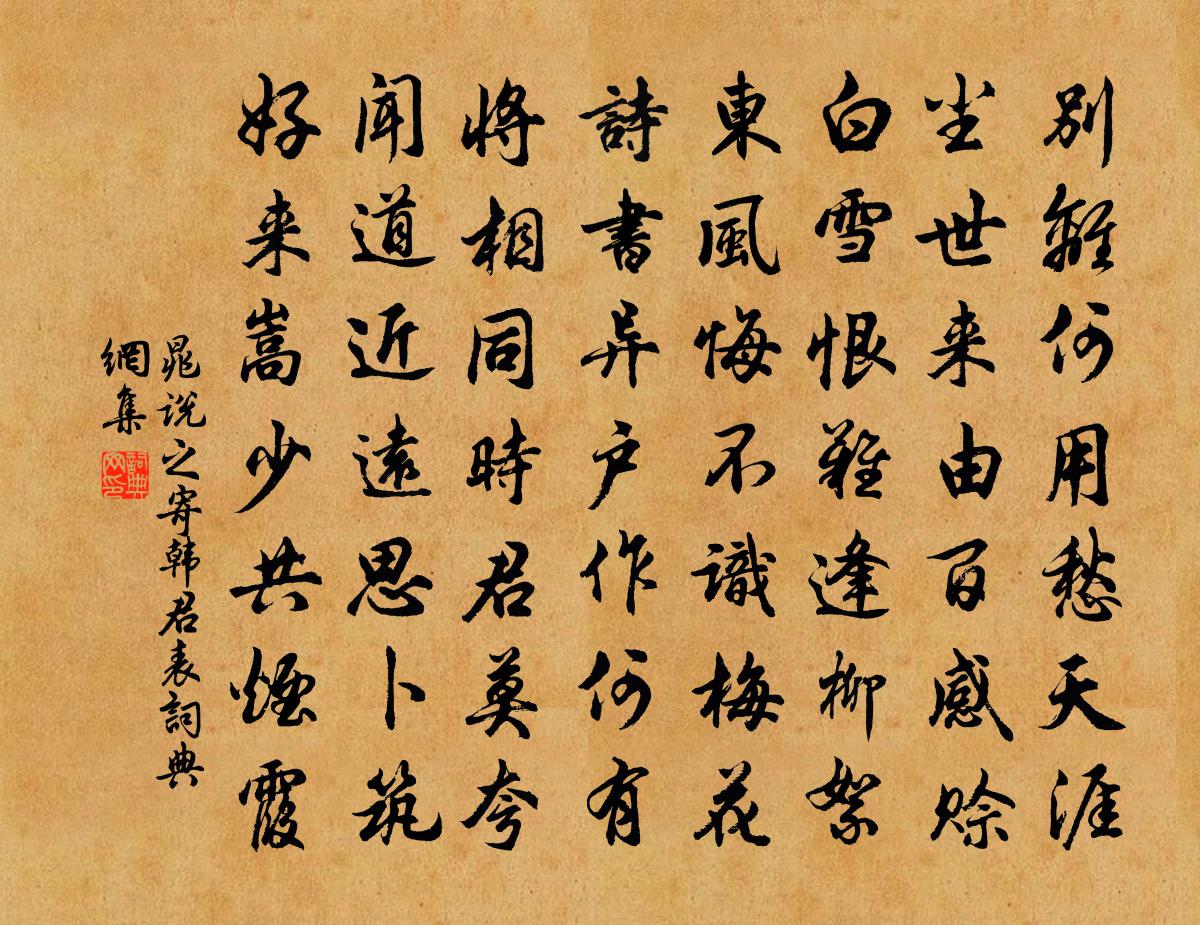 别離何用愁天涯
尘世来由百感賒
白雪恨難逢柳絮
東風悔不識梅花
詩書异户作何有
將相同時君莫夸
聞道近遠思卜筑
好来嵩少共煙霞
晁说之寄韩君表詞典
網集
詞典网印